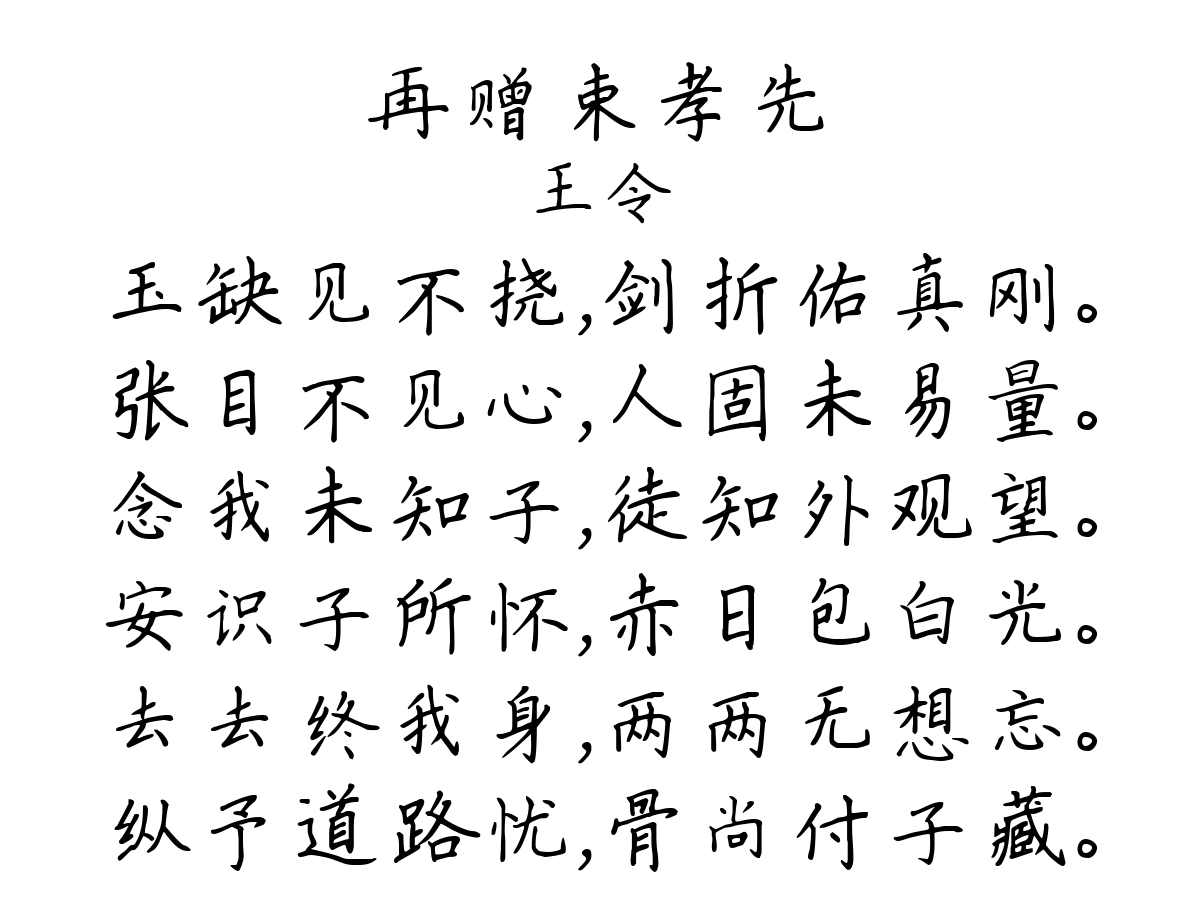 再赠束孝先
王令
玉缺见不挠,剑折佑真刚。
张目不见心,人固未易量。
念我未知子,徒知外观望。
安识子所怀,赤日包白光。
去去终我身,两两无想忘。
纵予道路忧,骨尚付子藏。